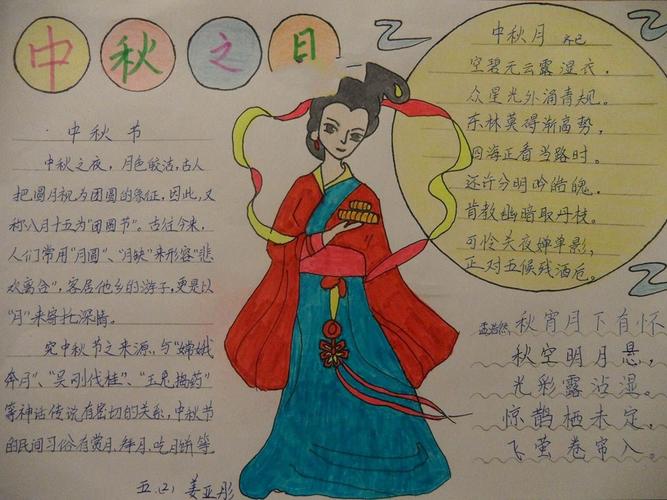 中秋之日
中秋节
中秋之夜,月色皎洁,古人
把圆月视为团圆的象征,因此,又
称八月十五为"团圆节"。古往今来,
人们常用"月圆"、"月缺"来形容"悲
欢离合",客居他乡的游子,更是以
"月"来寄托深情。
究中秋节之来源,与"嫦娥
奔月"、"吴刚伐桂"、"玉兔捣药"
等神话传说有密切的关系,中秋节
的民间习俗有赏月、拜月、吃月饼等
五.(2) 姜亚彤
中秋月
空碧元云露湿衣,
众星光外涌青规。
东林莫碍渐高势,
四海正看当路时。
还许分明吟皓魄,
肯教幽暗取丹枝。
可怜关夜婵单影,
正对五候残酒卮。
孟浩然 秋宵月下有怀
秋空明月悬,
光彩露沾湿。
惊鹊栖未定,
飞萤卷帘入。